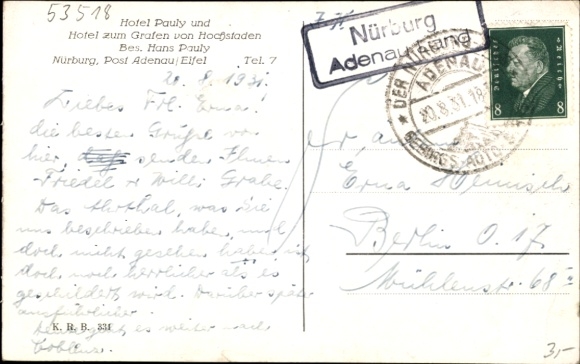 53518
Hotel Pauly und
Hotel zum Grafen von Hochstaden
Bes. Hans Pauly
Nürburg, Post Adenau/Eifel Tel. 7
20. 8. 1931.
Liebes Frl. Erna.
die besten Grüße von
hier, senden Ihnen
Friedel & Willi Grabe.
Das Ahrthal, was Sie
uns beschrieben habe, und
doch nicht gesehen habe, ist
doch noch herrlicher als es
geschildert wird. Darüber später
ausführlicher.
es weiter nach
Coblenz.
K. R. B. 334
Nürburg
Adenau Land
DER NÜRBURG
ADENAU
20.8.31.18
GEBIRGS-AUTO
Deutsches Reich
8 8
Erna
Berlin O. 17
Mühlenstr. 68
3,-